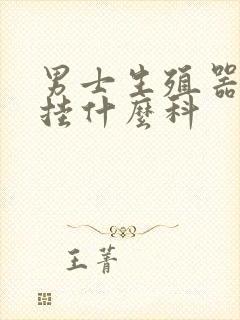 男士生殖器
挂什麼科
王菁